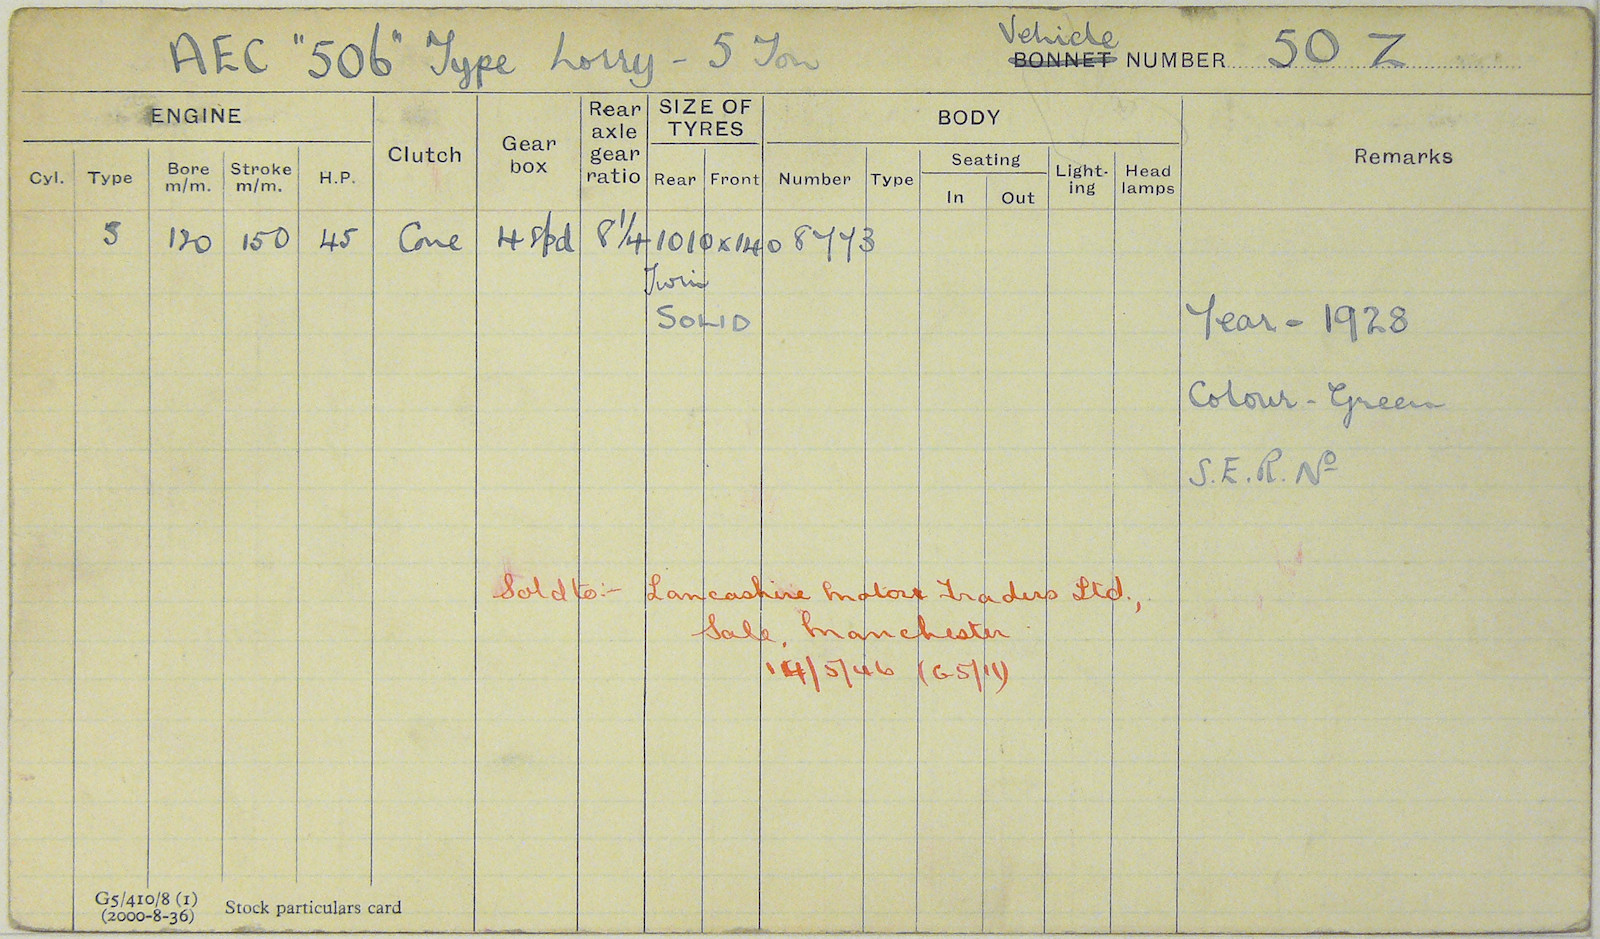 AEC "506" Type Lorry - 5 Ton
Vehicle
BONNET NUMBER 50 Z
ENGINE
Clutch
Gear box
Rear axle gear ratio
SIZE OF TYRES
BODY
Remarks
Cyl.
Type
Bore m/m.
Stroke m/m.
H.P.
Rear
Front
Number
Type
Seating
In
Out
Light-ing
Head lamps
5 120 150 45 Cone 4 Spd 8¼ 1010 x 140 8773
Twin
SOLID
Year - 1928
Colour - Green
S.E.R. Nº
Sold to:- Lancashire Motor Traders Ltd.,
Sale, Manchester
14/5/46 (G5/11)
G5/410/8 (1)
(2000-8-36)
Stock particulars card